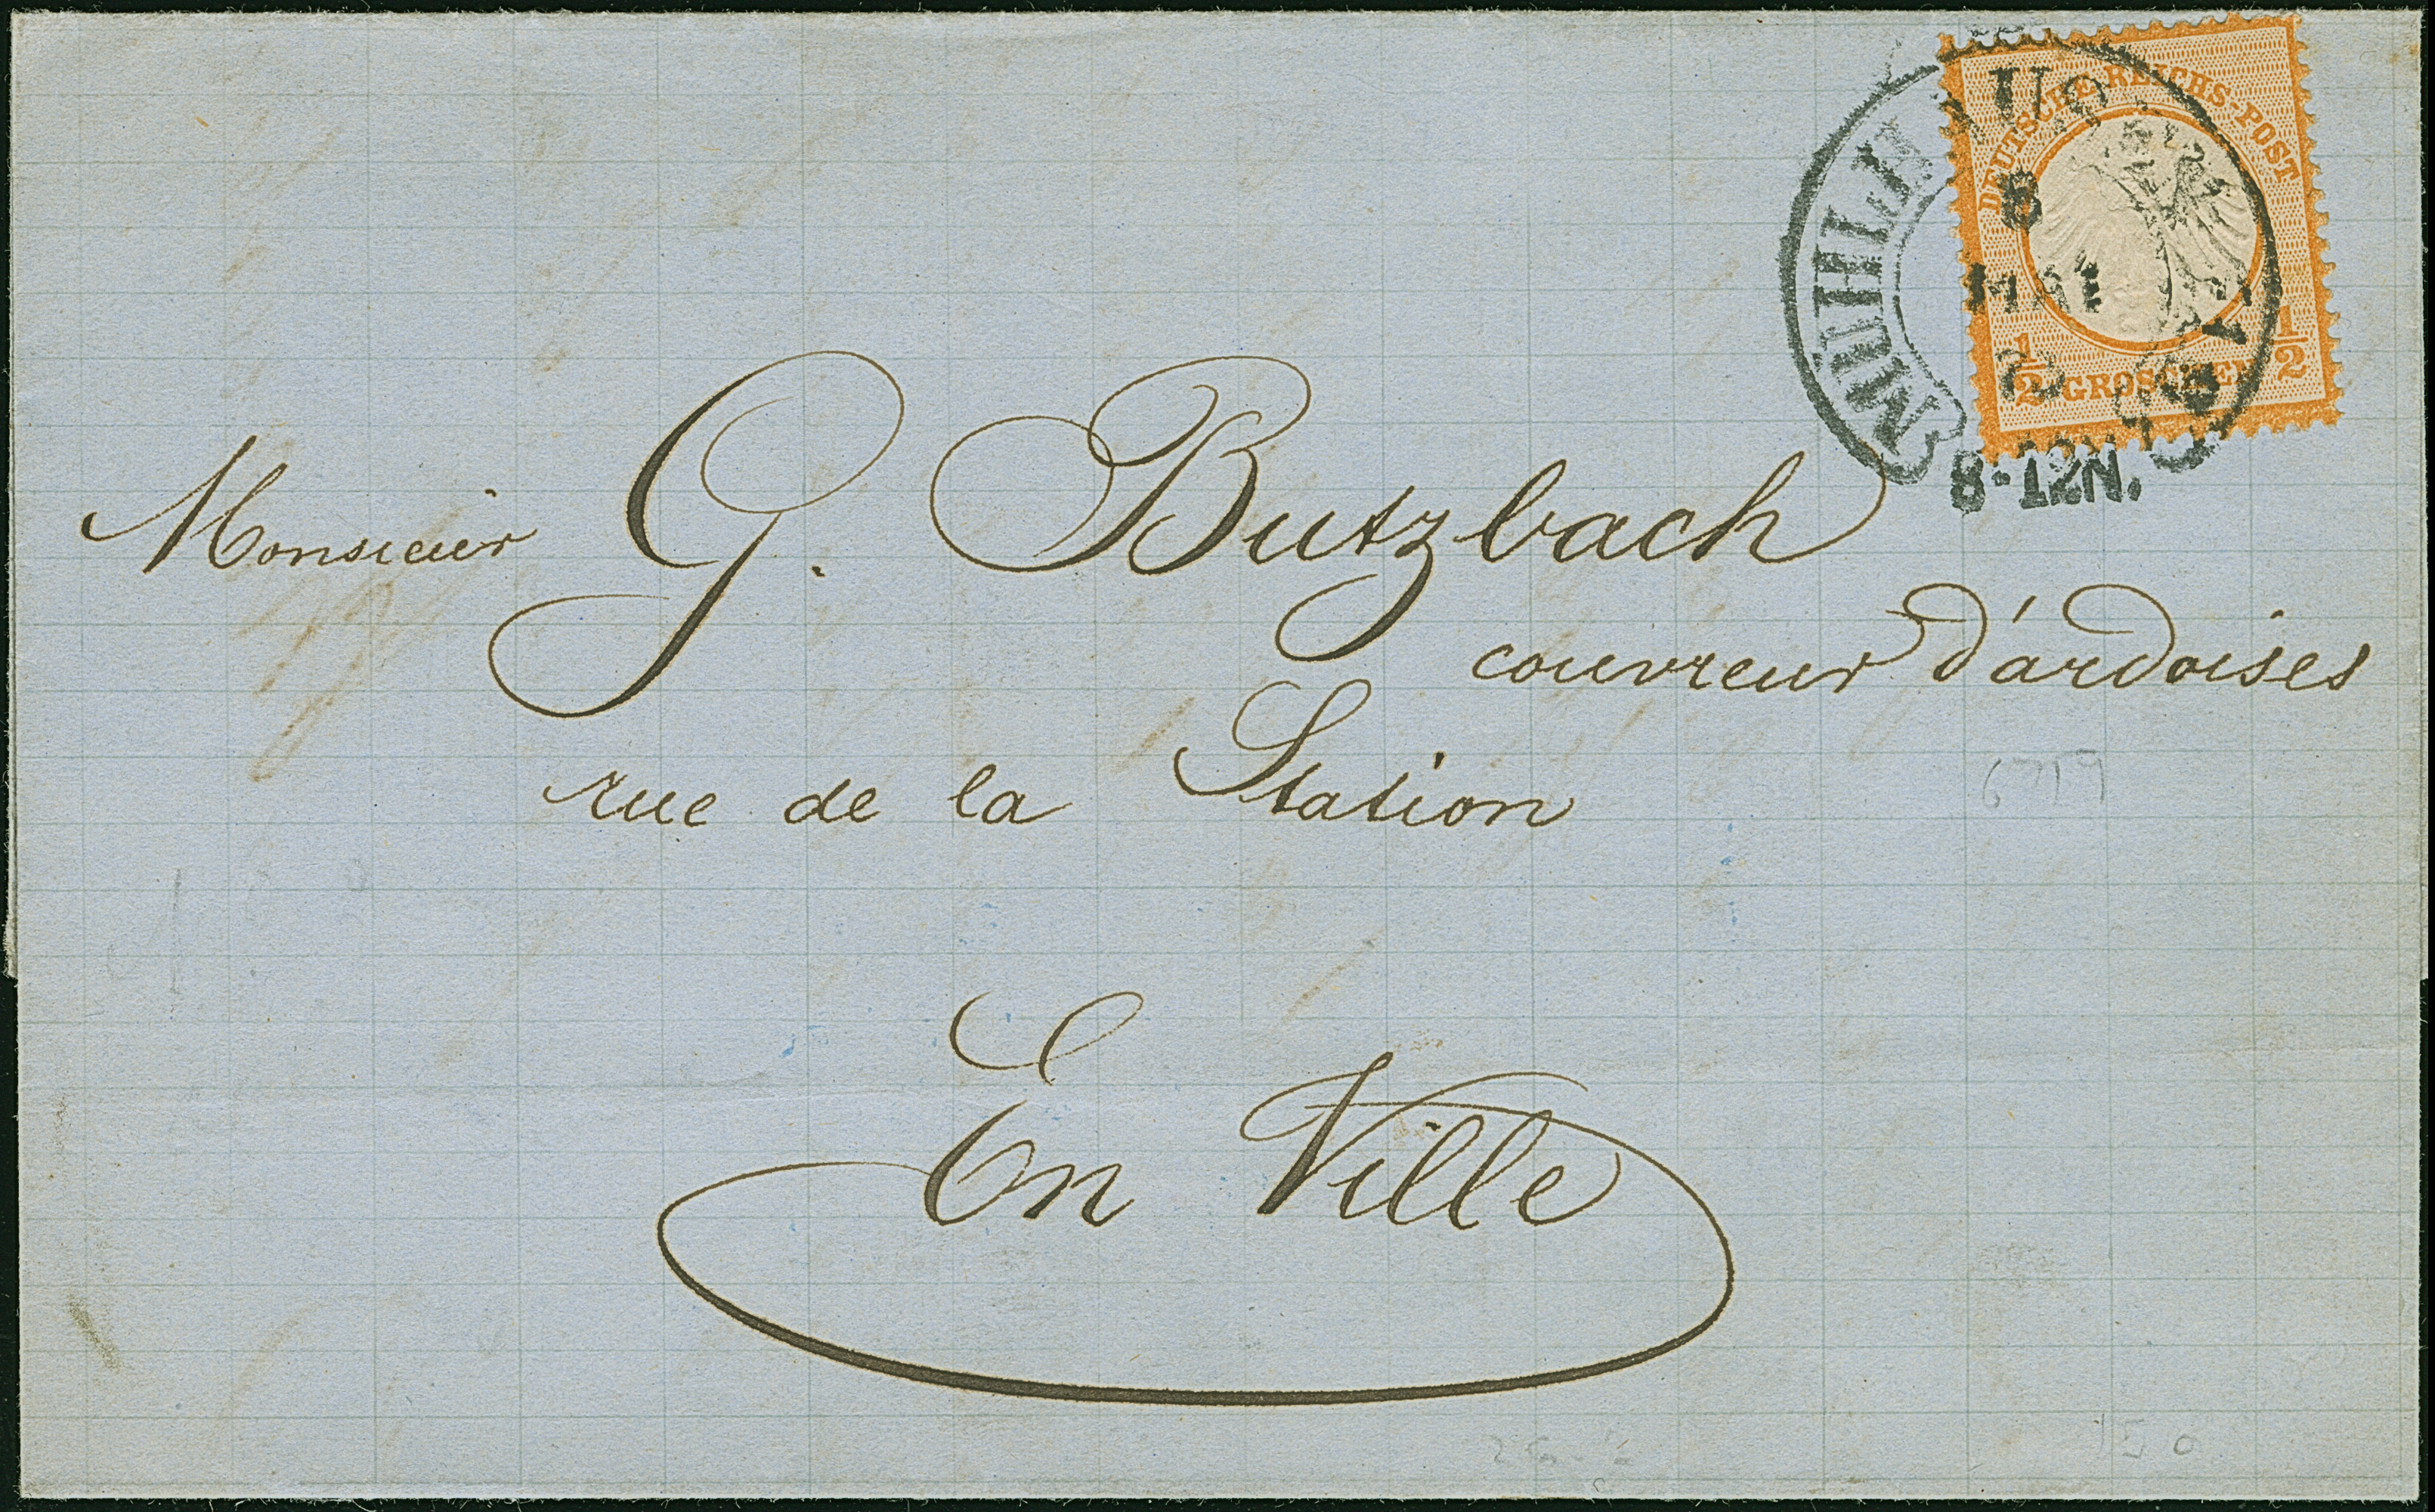 DEUTSCHE REICHS-POST
1/2 GROSCHEN 1/2
MÜHLHAUS
8
MAI
8-12N.
Monsieur G. Butzbach
couvreur d'ardoises
rue de la Station
6719
En Ville